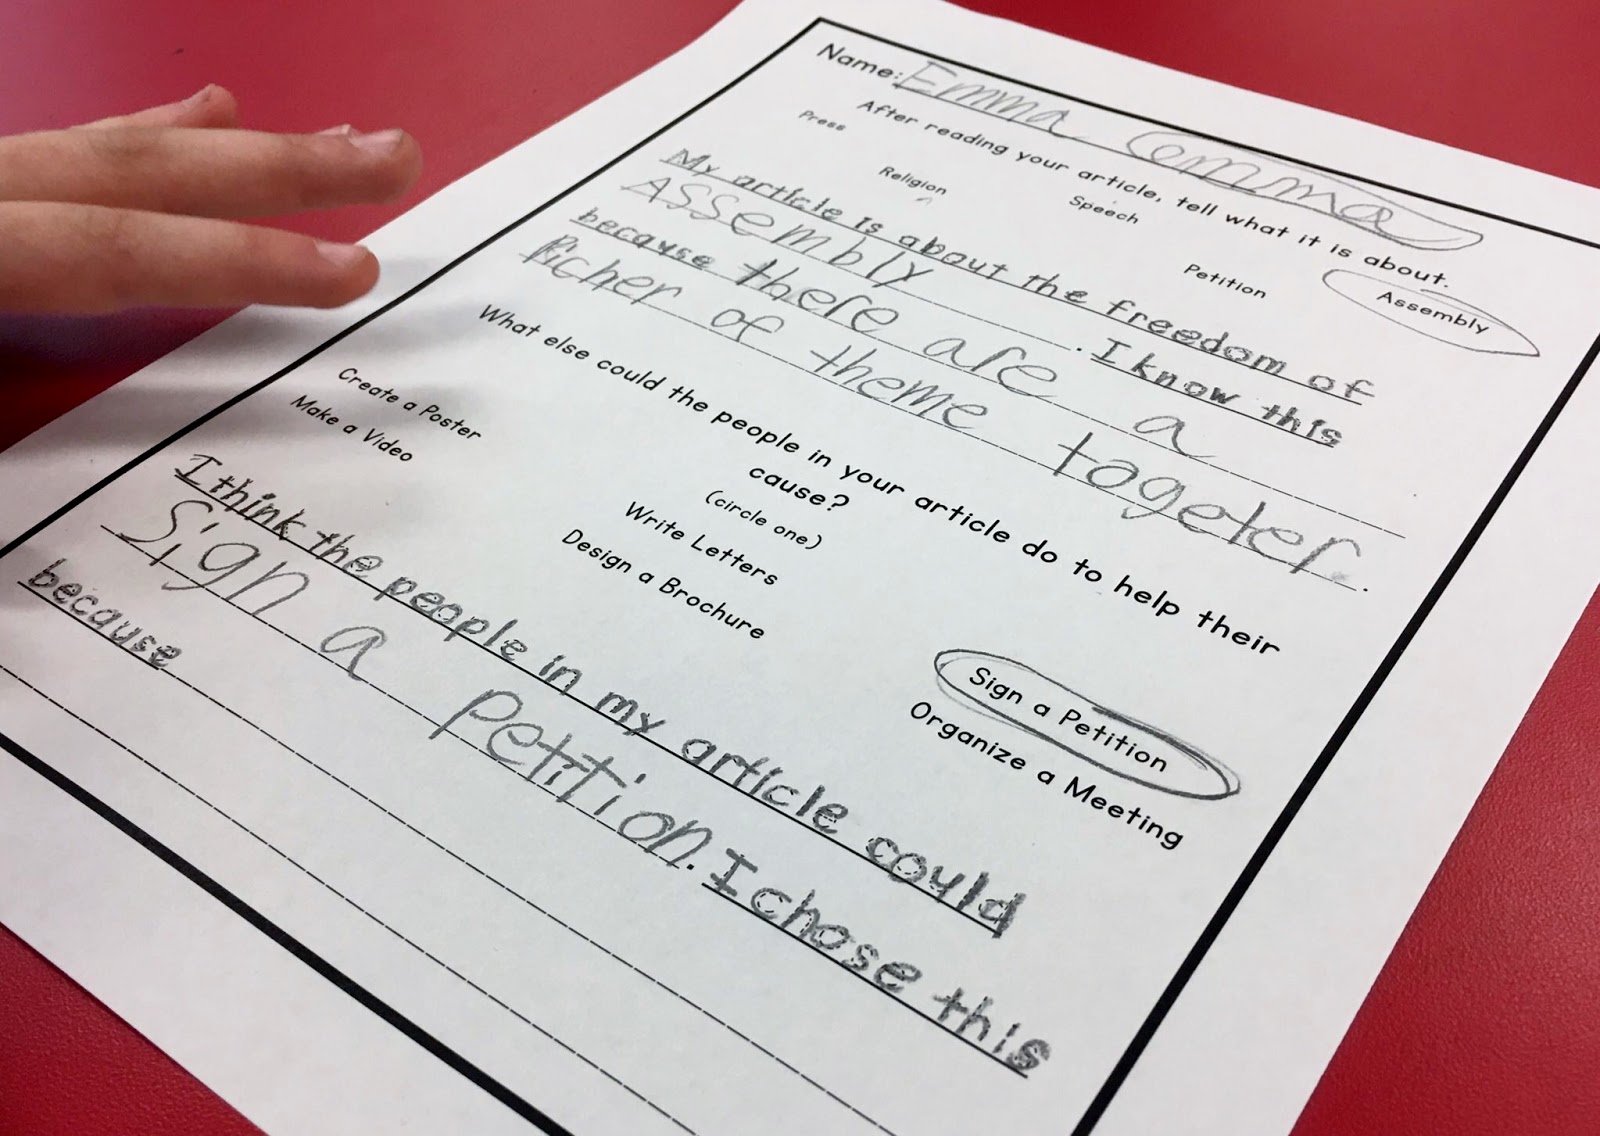 Name: Emma Emma
After reading your article, tell what it is about.
Press Religion Speech Petition Assembly
My article is about the freedom of
Assembly . I know this
because there are a
Picher of theme togeter .
What else could the people in your article do to help their
cause?
(circle one)
Create a Poster Write Letters Sign a Petition
Make a Video Design a Brochure Organize a Meeting
I think the people in my article could
Sign a petition. I chose this
because